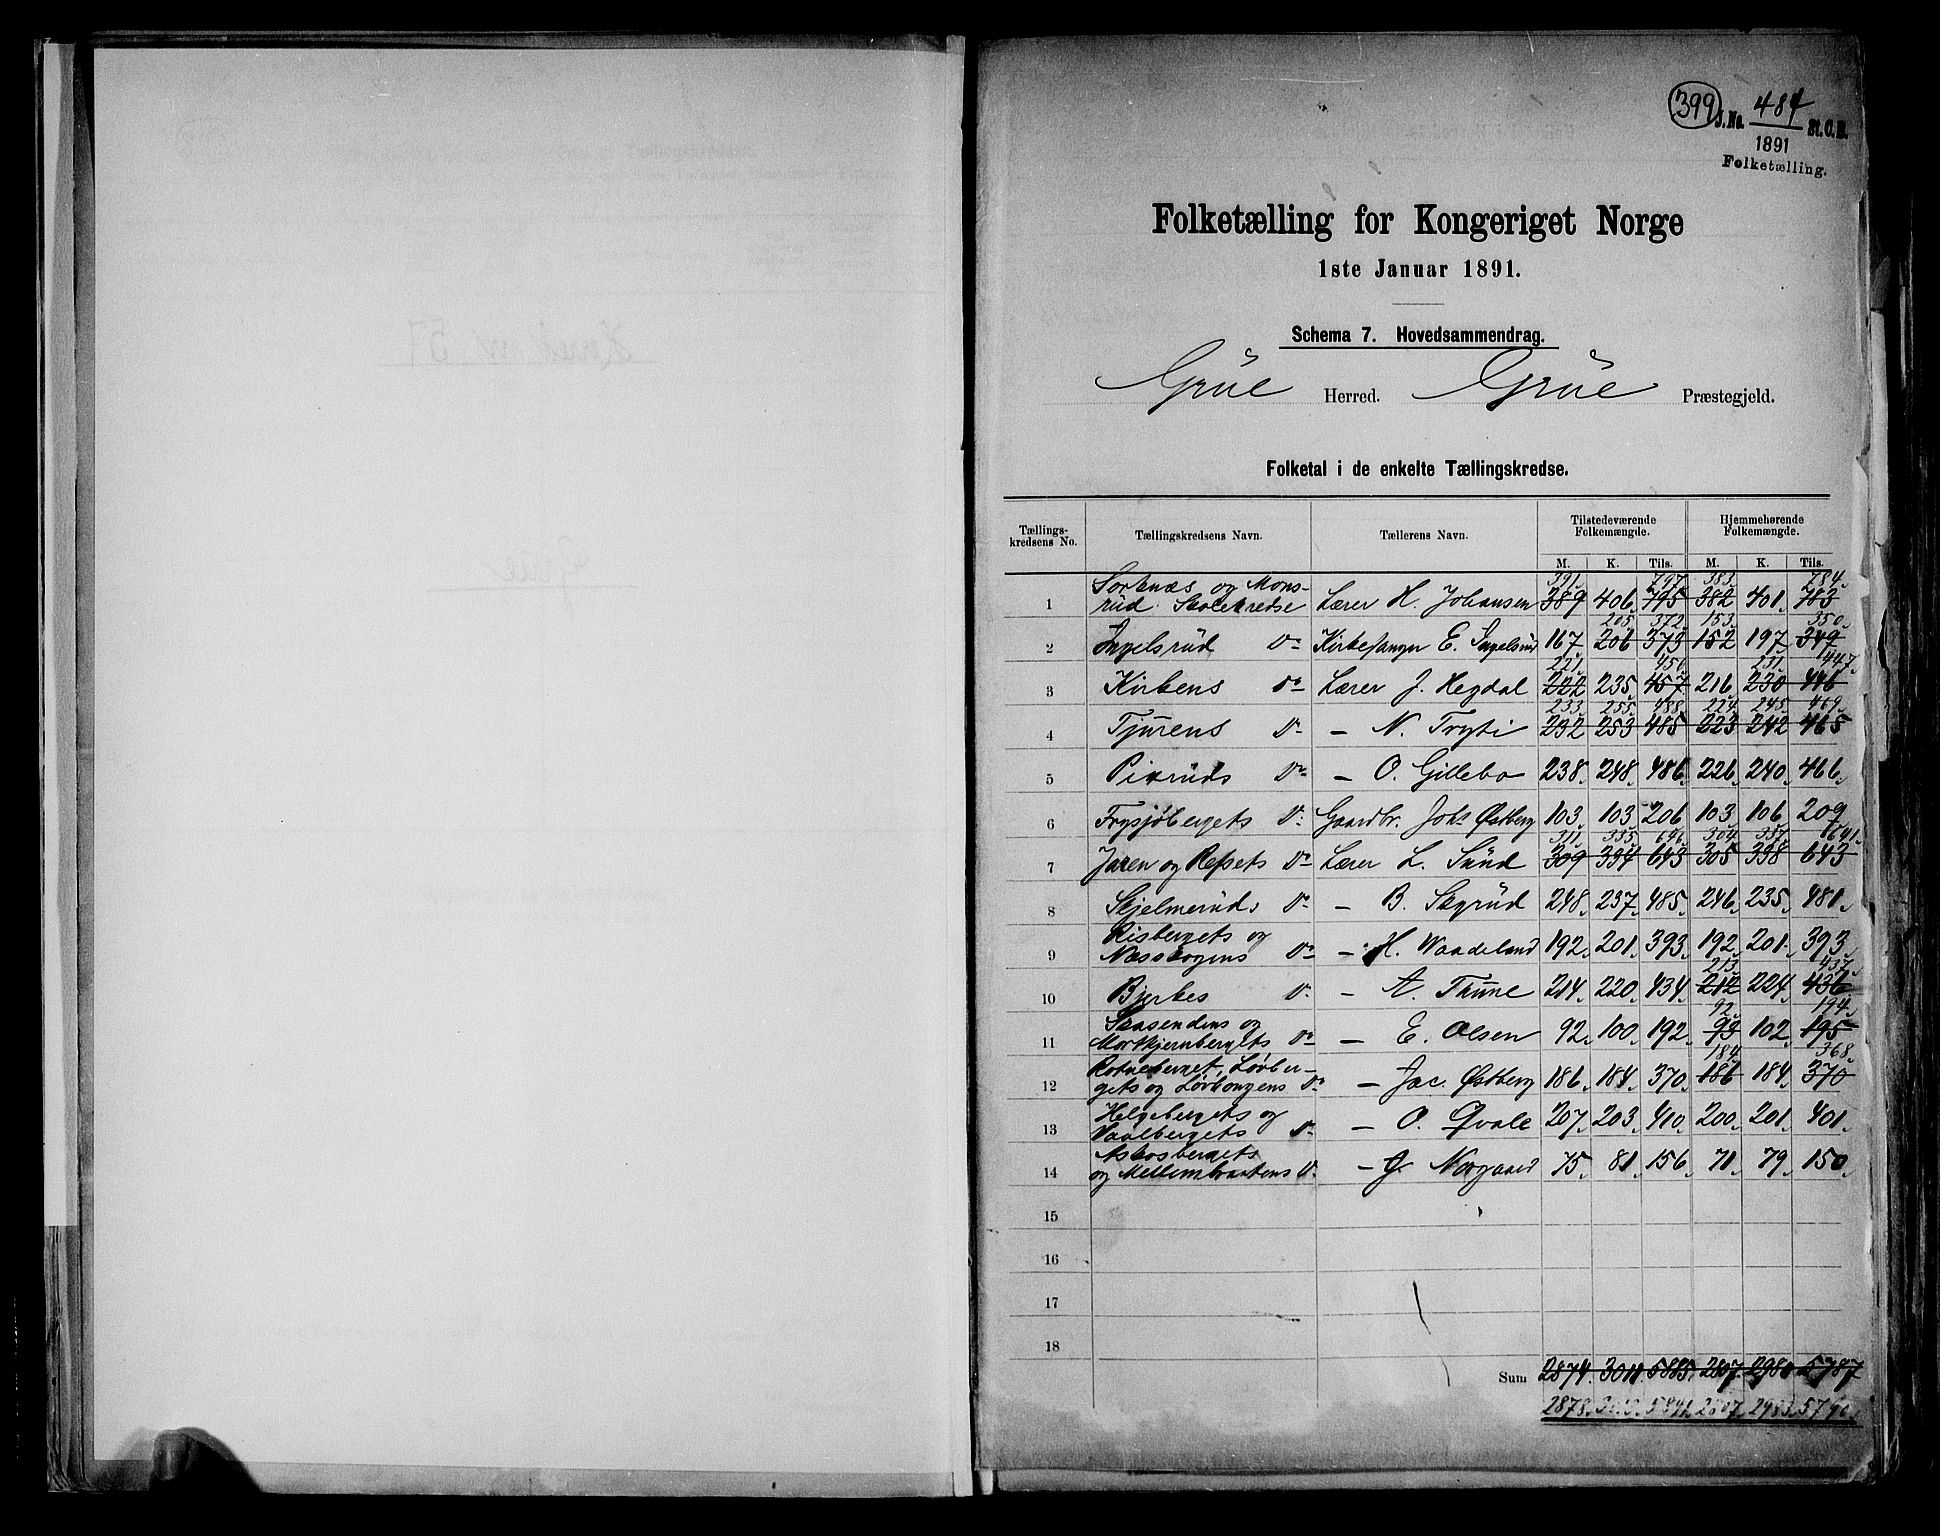 399
J.No. 484 St.C.B.
1891
Folketælling.
Folketælling for Kongeriget Norge
1ste Januar 1891.
Schema 7. Hovedsammendrag.
Grue Herred. Grue Præstegjeld.
Folketal i de enkelte Tællingskredse.
Tællings-kredsens No. Tællingskredsens Navn. Tællerens Navn. Tilstedeværende Folkemængde. Hjemmehørende Folkemængde.
M. K. Tils. M. K. Tils.
391 797 383 784
1 Sorknæs og Mons-
rud Skolekredse Lærer H. Johansen 389 406 795 382 401 783
205 372 153 350
2 Ingelsrud Do Kirkesanger E. Ingelsrud 167 206 373 152 197 349
221 456 231 447
3 Kirkens Do Lærer J. Hegdal 222 235 457 216 230 446
233 255 488 224 245 469
4 Tjurens Do — N. Tryti 232 253 485 223 242 465
5 Pixruds Do — O. Gillebo 238 248 486 226 240 466
6 Frysjøbergets Do Gaardbr. Johs Østberg 103 103 206 103 106 209
311 335 646 304 337 641
7 Jaren og Refsets Do Lærer L. Sund 309 334 643 305 338 643
8 Skjelmeruds Do — B. Skyrud 248 237 485 246 235 481
9 Risbergets og
Næsskogens Do — H. Waadeland 192 201 393 192 201 393
213 437
10 Bjerkes Do — A. Thune 214 220 434 212 224 436
92 194
11 Skasendens og
Mortkjernbergets Do — E. Olsen 92 100 192 93 102 195
184 368
12 Rotneberget, Lövber-
gets og Lövhaugens Do — Jac. Østberg 186 184 370 186 184 370
13 Helgebergets og
Vaalbergets Do — O. Qvale 207 203 410 200 201 401
14 Askosbergets
og Mellembraatens Do — J. Norgaard 75 81 156 71 79 150
15
16
17
18
Sum 2874 3011 5885 2807 2980 5787
2878 3013 5891 2807 2983 5790